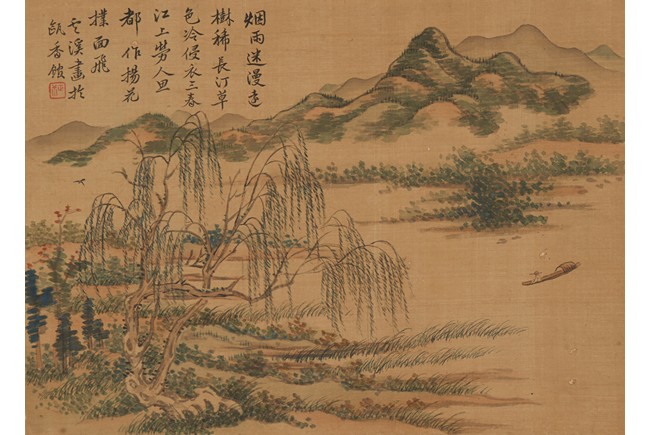 烟雨迷漫遠
樹稀長汀草
色冷侵衣三春
江上勞人思
都作楊花
撲面飛
雲溪畫於
甌香館